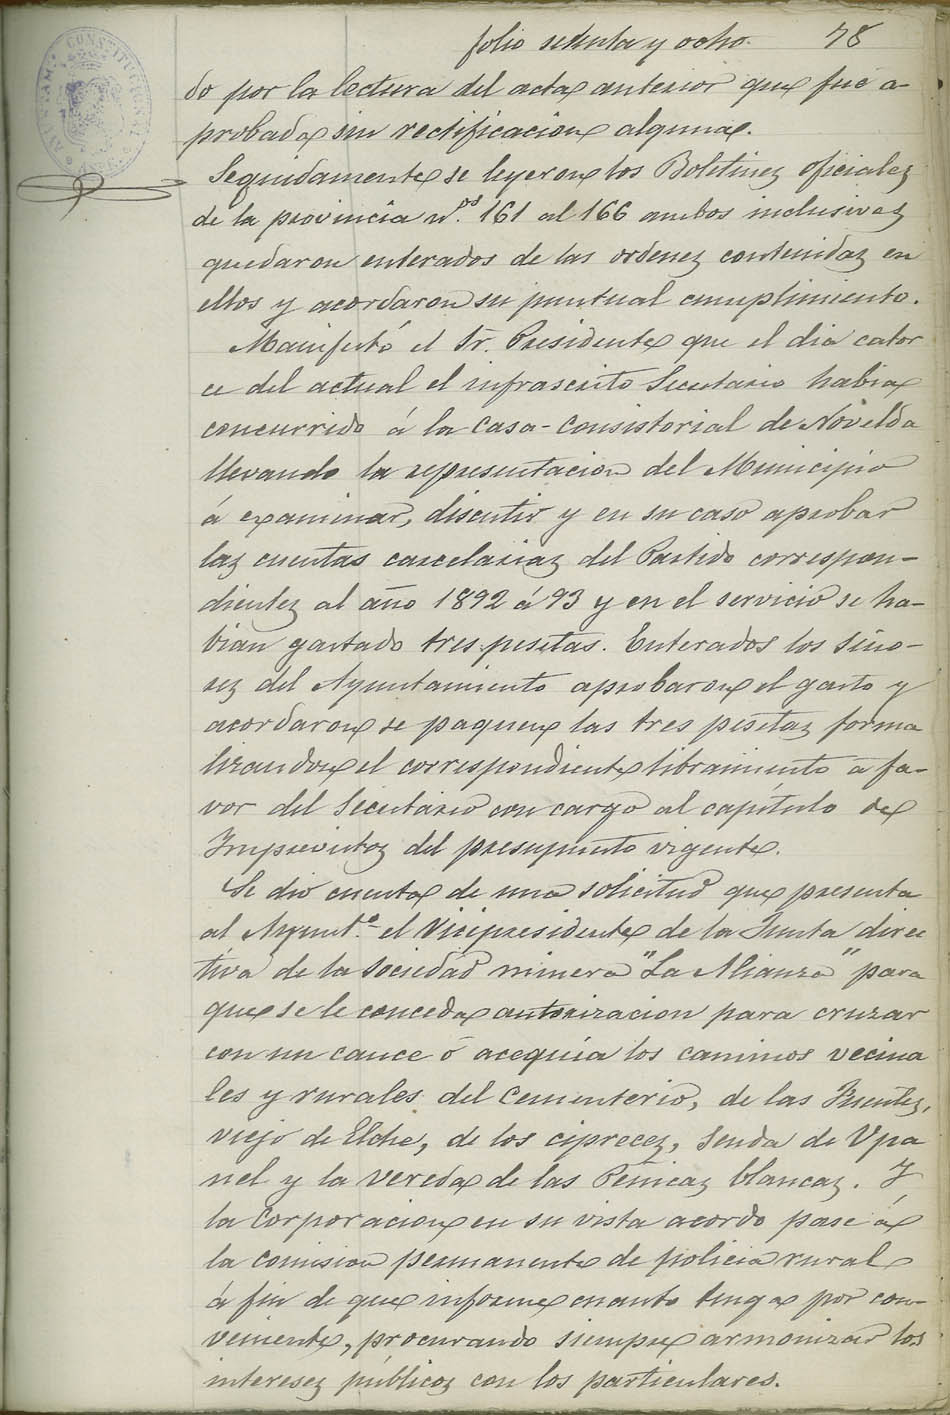 folio setenta y ocho. 78
do por la lectura del acta anterior que fué a-
probada sin rectificacion alguna.
Seguidamente se leyeron los Boletines oficiales
de la provincia n.os 161 al 166 ambos inclusives
quedaron enterados de las ordenes contenidas en
ellos y acordaron su puntual cumplimiento.
Manifestó el Sr. Presidente que el dia cator
ce del actual el infrascrito Secretario habia
concurrido á la casa-consistorial de Novelda
llevando la representacion del Municipio
á examinar, discutir y en su caso aprobar
las cuentas carcelarias del Partido correspon-
dientes al año 1892 á 93 y en el servicio se ha-
bian gastado tres pesetas. Enterados los Seño-
res del Ayuntamiento aprobaron el gasto y
acordaron se paguen las tres pesetas forma
lizandose el correspondiente libramiento á fa-
vor del Secretario con cargo al capítulo de
Imprevistos del presupuesto vigente.
Se dió cuenta de una solicitud que presenta
al Ayunt.o el Vicepresidente de la Junta direc
tiva de la Sociedad minera "La Alianza" para
que se le conceda autorizacion para cruzar
con un cauce ó acequia los caminos vecina
les y rurales del Cementerio, de las Fuentes,
viejo de Elche, de los cipreces, Senda de Upa
nel y la vereda de las Peñicas blancas. Y
la Corporacion en su vista acordó pase á
la comision permanente de policia rural
á fin de que informe cuanto tenga por con-
veniente, procurando siempre armonizar los
intereses públicos con los particulares.
AYUNTAM.
CONSTITUCIONAL